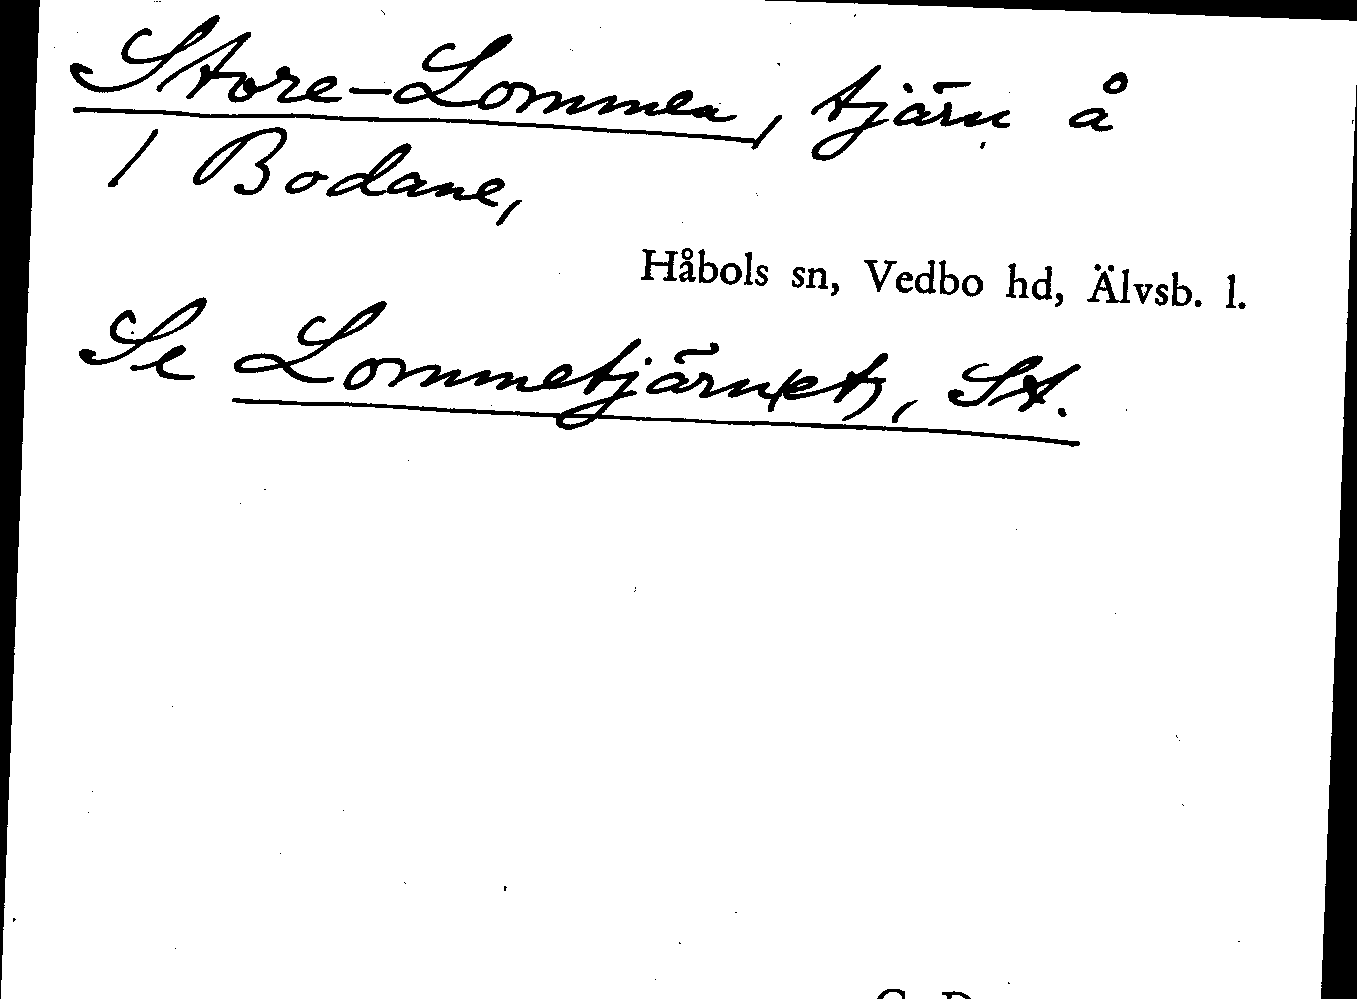 Store-Lommen, tjärn å
1 Bodane,
Håbols sn, Vedbo hd, Älvsb. l.
Se Lommetjärn(et), St.